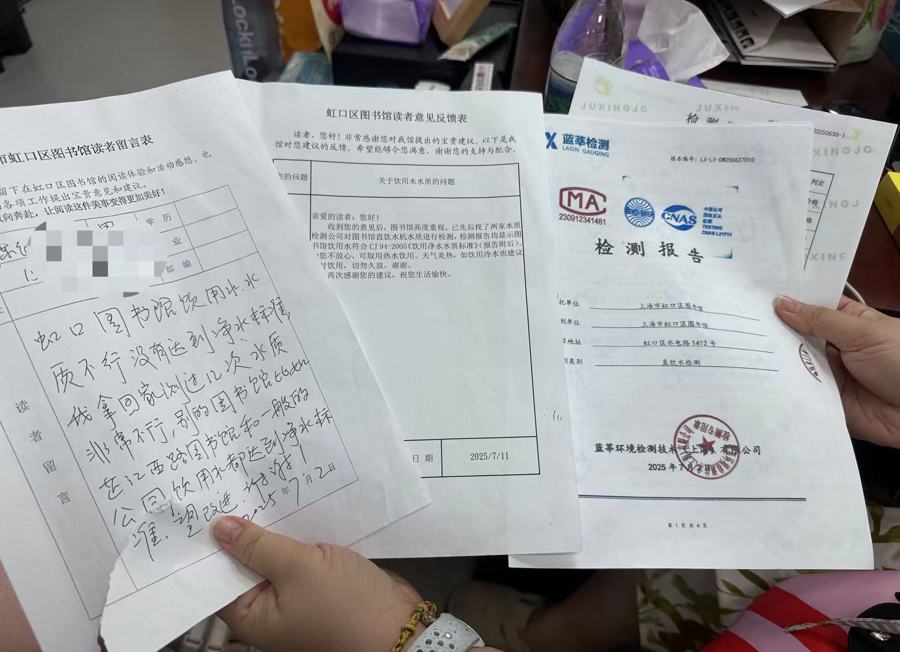 市虹口区图书馆读者留言表
留下在虹口区图书馆的阅读体验和活动感想，也
各项工作提出宝贵意见和建议。
双向奔赴，让阅读这件美事变得更加美好！
男
学历
业
邮编
读者留言
虹口图书馆饮用水.水
质不行没有达到净水标准
我拿回家测过12次水质
非常不行,别的图书馆
芷江西路图书馆和一般的
公司饮用水都达到净水标
准.望改进 谢谢!
2025年7月2日
虹口区图书馆读者意见反馈表
读者，您好！非常感谢您对我馆提出的宝贵建议。以下是我
馆对您建议的反馈。希望能够令您满意，谢谢您的支持与配合。
您的问题
关于饮用水水质的问题
亲爱的读者：您好！
收到您的意见后，图书馆高度重视，已先后找了两家水质
检测公司对图书馆直饮水机水质进行检测，检测报告均显示图
书馆饮用水符合 CJ 94-2005《饮用净水水质标准》（报告附后）。
您不放心，可取用热水饮用。天气炎热，如饮用冷水也建议
时饮用，切勿久放，谢谢。
再次感谢您的建议，祝您生活愉快。
日期
2025/7/11
蓝莘检测
LASIN GAUGING
报告编号：LX-LY-OW250627010
MA
230912341481
ilac-MRA
CNAS
中国认可
国际互认
检测
TESTING
检测报告
托单位
上海市虹口区图书馆
测单位
上海市虹口区图书馆
地址
虹口区水电路 1412 号
类别
直饮水检测
蓝莘环境检测技术（上海）有限公司
2025 年 7 月 2 日
第 1 页 共 4 页
JUXINGJC
JUXINGJC
检测
判定